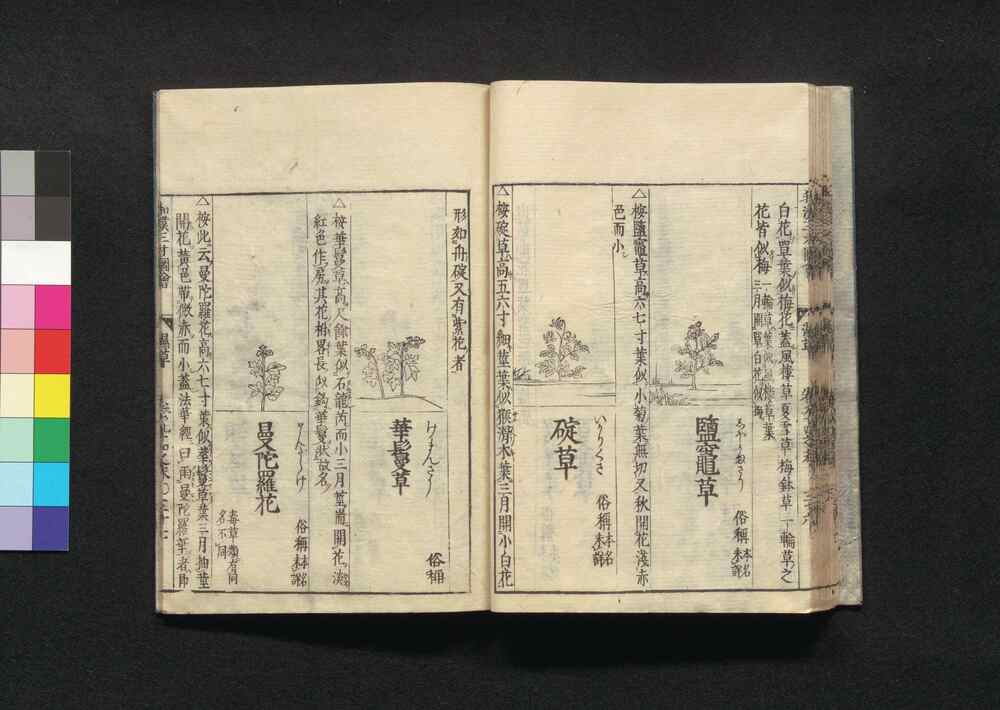 白花單葉似梅花蓋風車草夏雪草梅鉢草一輪草之
花皆似梅
鹽竈草
俗稱
本名
未詳
△按鹽竈草高六七寸葉似小菊葉無切又秋開花淺赤
色而小
碇草
いかりくさ
俗稱
本名
未詳
△按碇草高五六寸細莖葉似猴滑木葉三月開小白花
形如舟碇又有紫花者
華鬘草
けまんさう
俗稱
△按華鬘草高尺餘葉似石龍芮而小三月莖耑開花淡
紅色作房其花相畧長似鎬華鬘狀故名
曼陀羅花
まんだらけ
俗稱
本名
未詳
毒草類有同
名不同
△按此云曼陀羅花高六七寸葉似華鬘草葉三月抽莖
開花黃色帶微赤而小蓋法華經曰雨曼陀羅華者即
和漢三才圖會
濕草